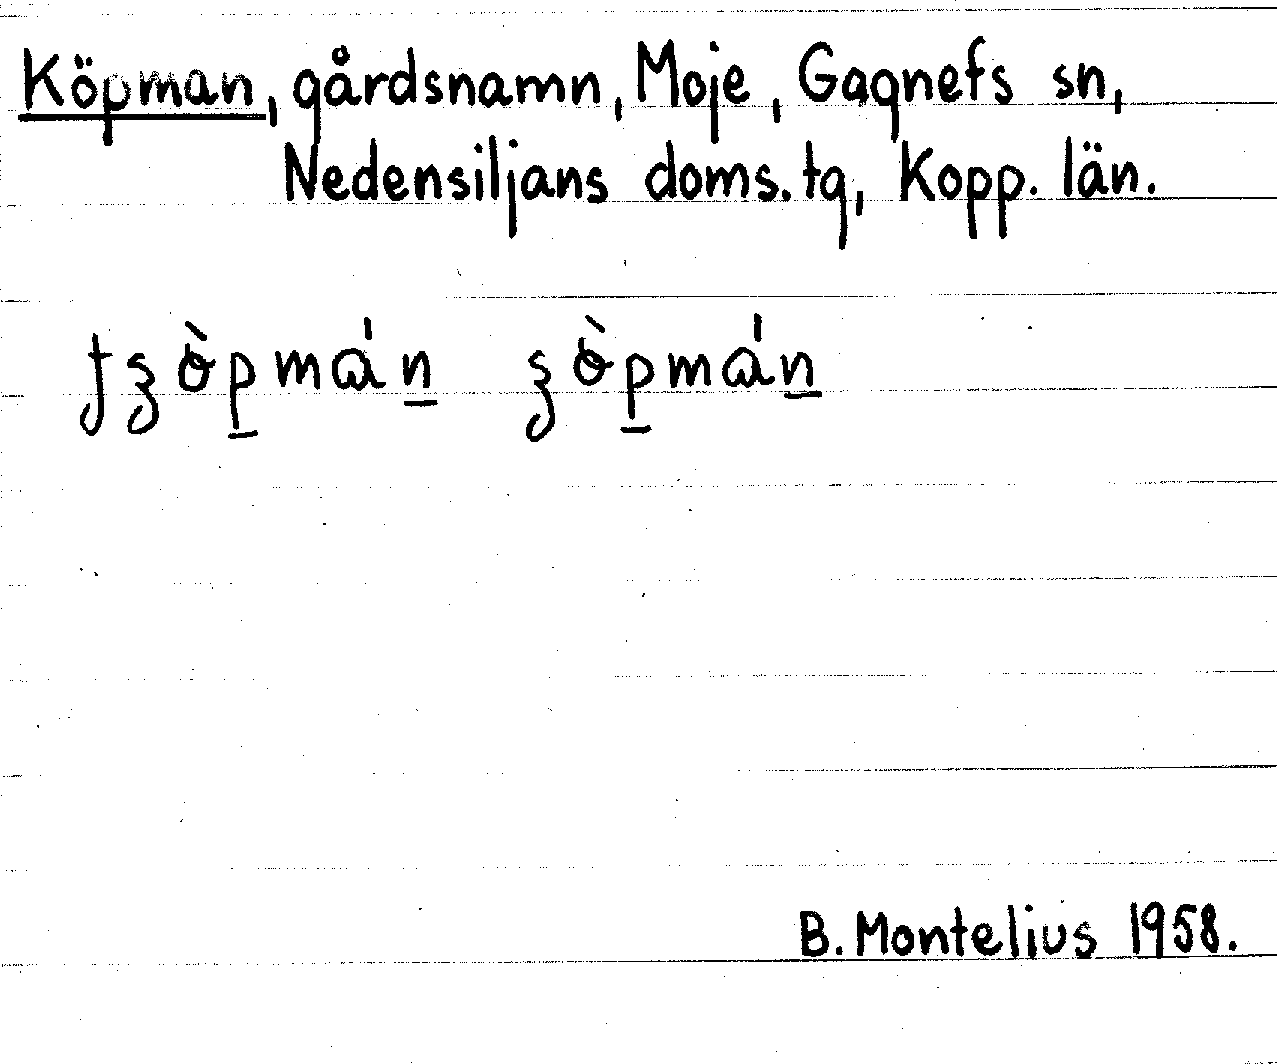 Köpman, gårdsnamn, Moje, Gagnefs sn,
Nedensiljans doms.tg, Kopp. län.
B. Montelius 1958.